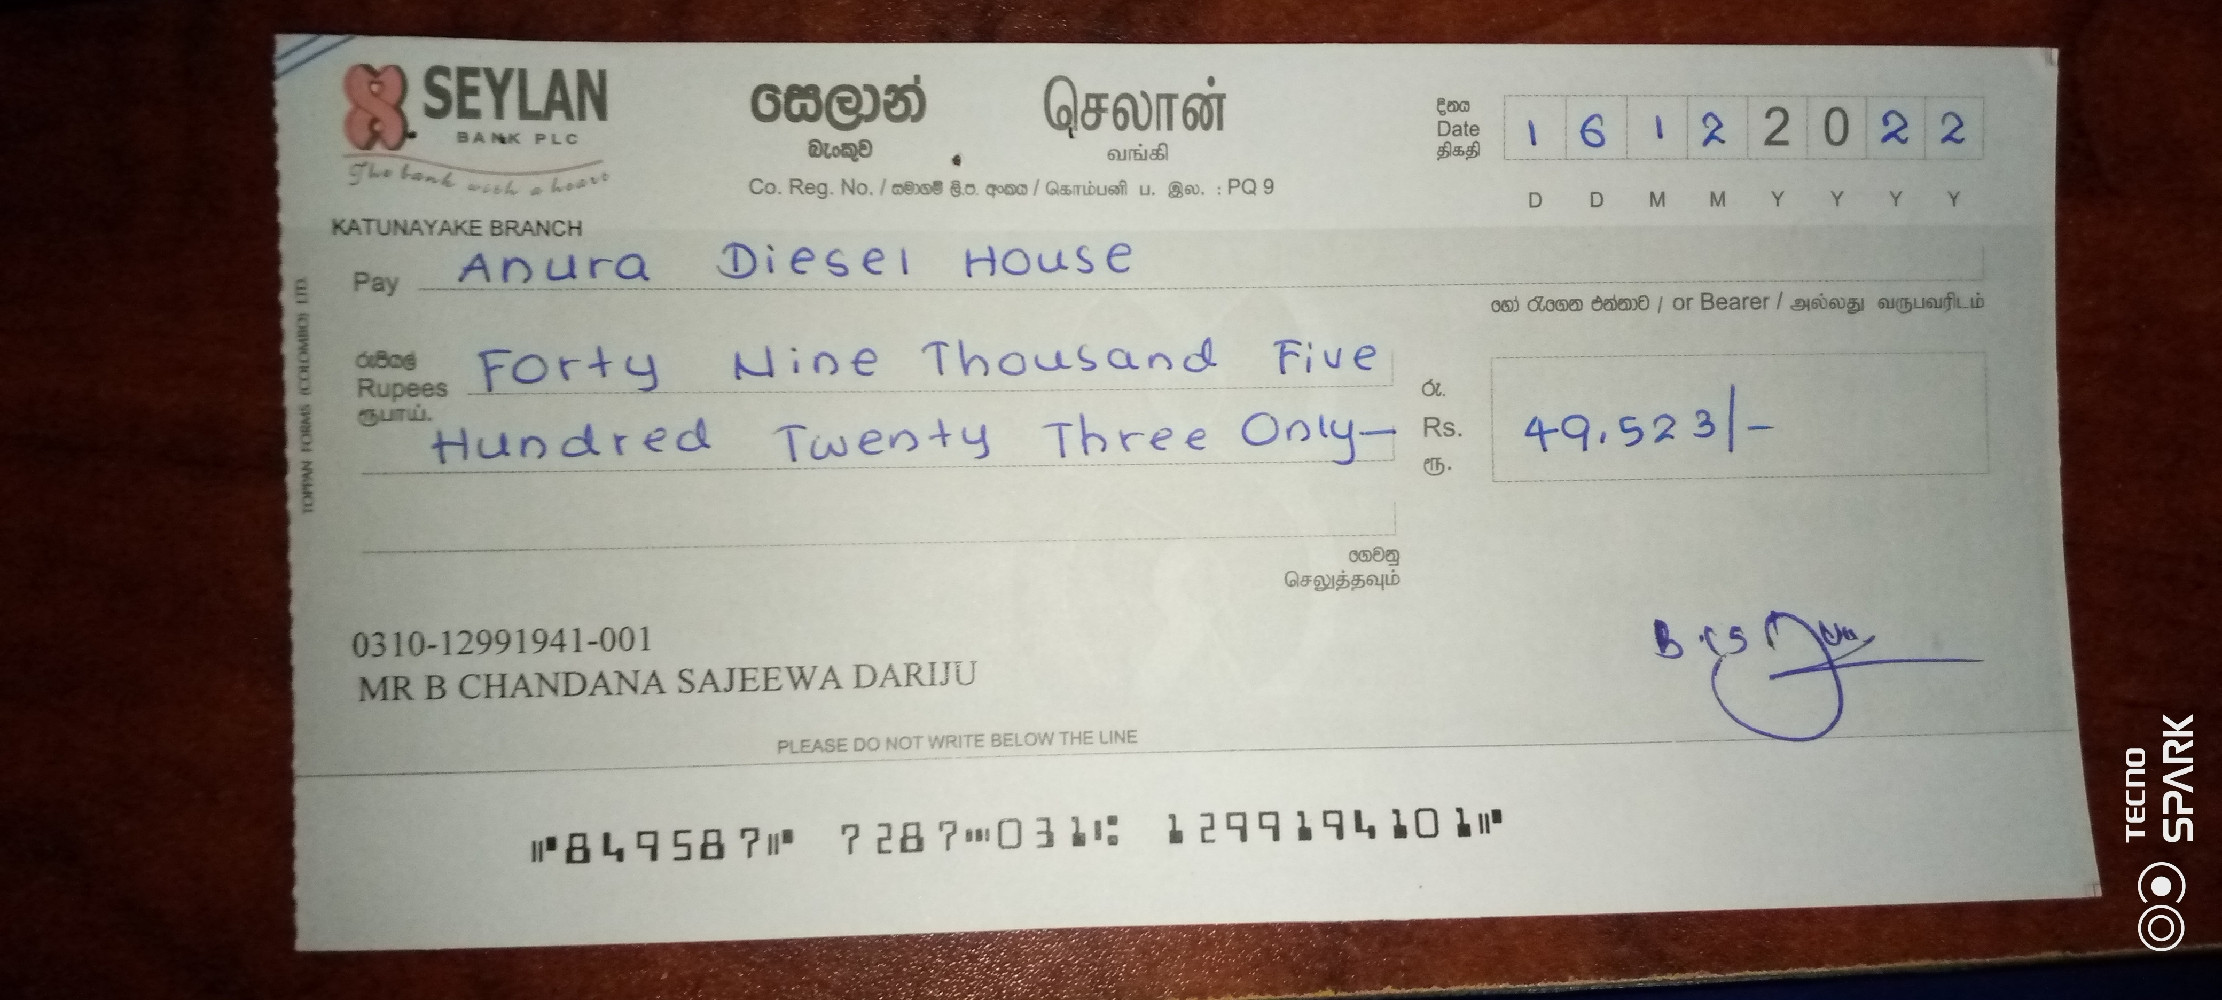 SEYLAN
BANK PLC
The bank with a heart
සෙලාන්
බැංකුව
செலான்
வங்கி
Co. Reg. No. / සමාගම් ලි.ප. අංකය / கொம்பனி ப. இல. : PQ 9
දිනය
Date
திகதி
1 6 1 2 2 0 2 2
D D M M Y Y Y Y
KATUNAYAKE BRANCH
Pay Anura Diesel House
හෝ රැගෙන එන්නාට / or Bearer / அல்லது வருபவரிடம்
රුපියල්
Rupees Forty Nine Thousand Five
ரூபாய்.
Hundred Twenty Three Only—
රු.
Rs. 49,523/-
ரூ.
ගෙවනු
செலுத்தவும்
TOPPAN FORMS (COLOMBO) LTD.
0310-12991941-001
MR B CHANDANA SAJEEWA DARIJU
PLEASE DO NOT WRITE BELOW THE LINE
⑈849587⑈ 7287⑉031⑆ 129919410 1⑈
TECNO
SPARK